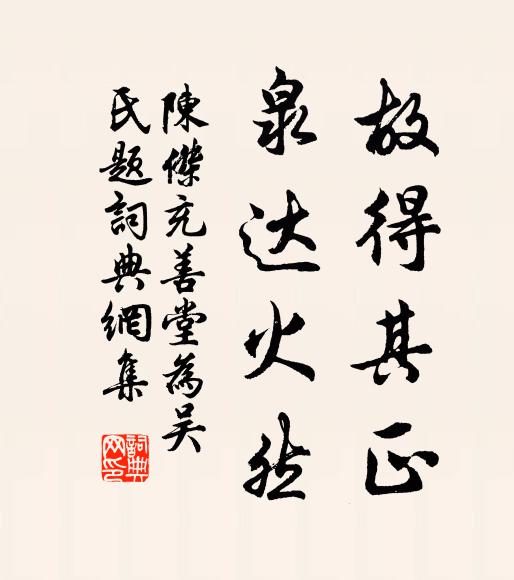 故得其正
泉达火然
陳傑充善堂為吴
氏題詞典網集
詞典网印